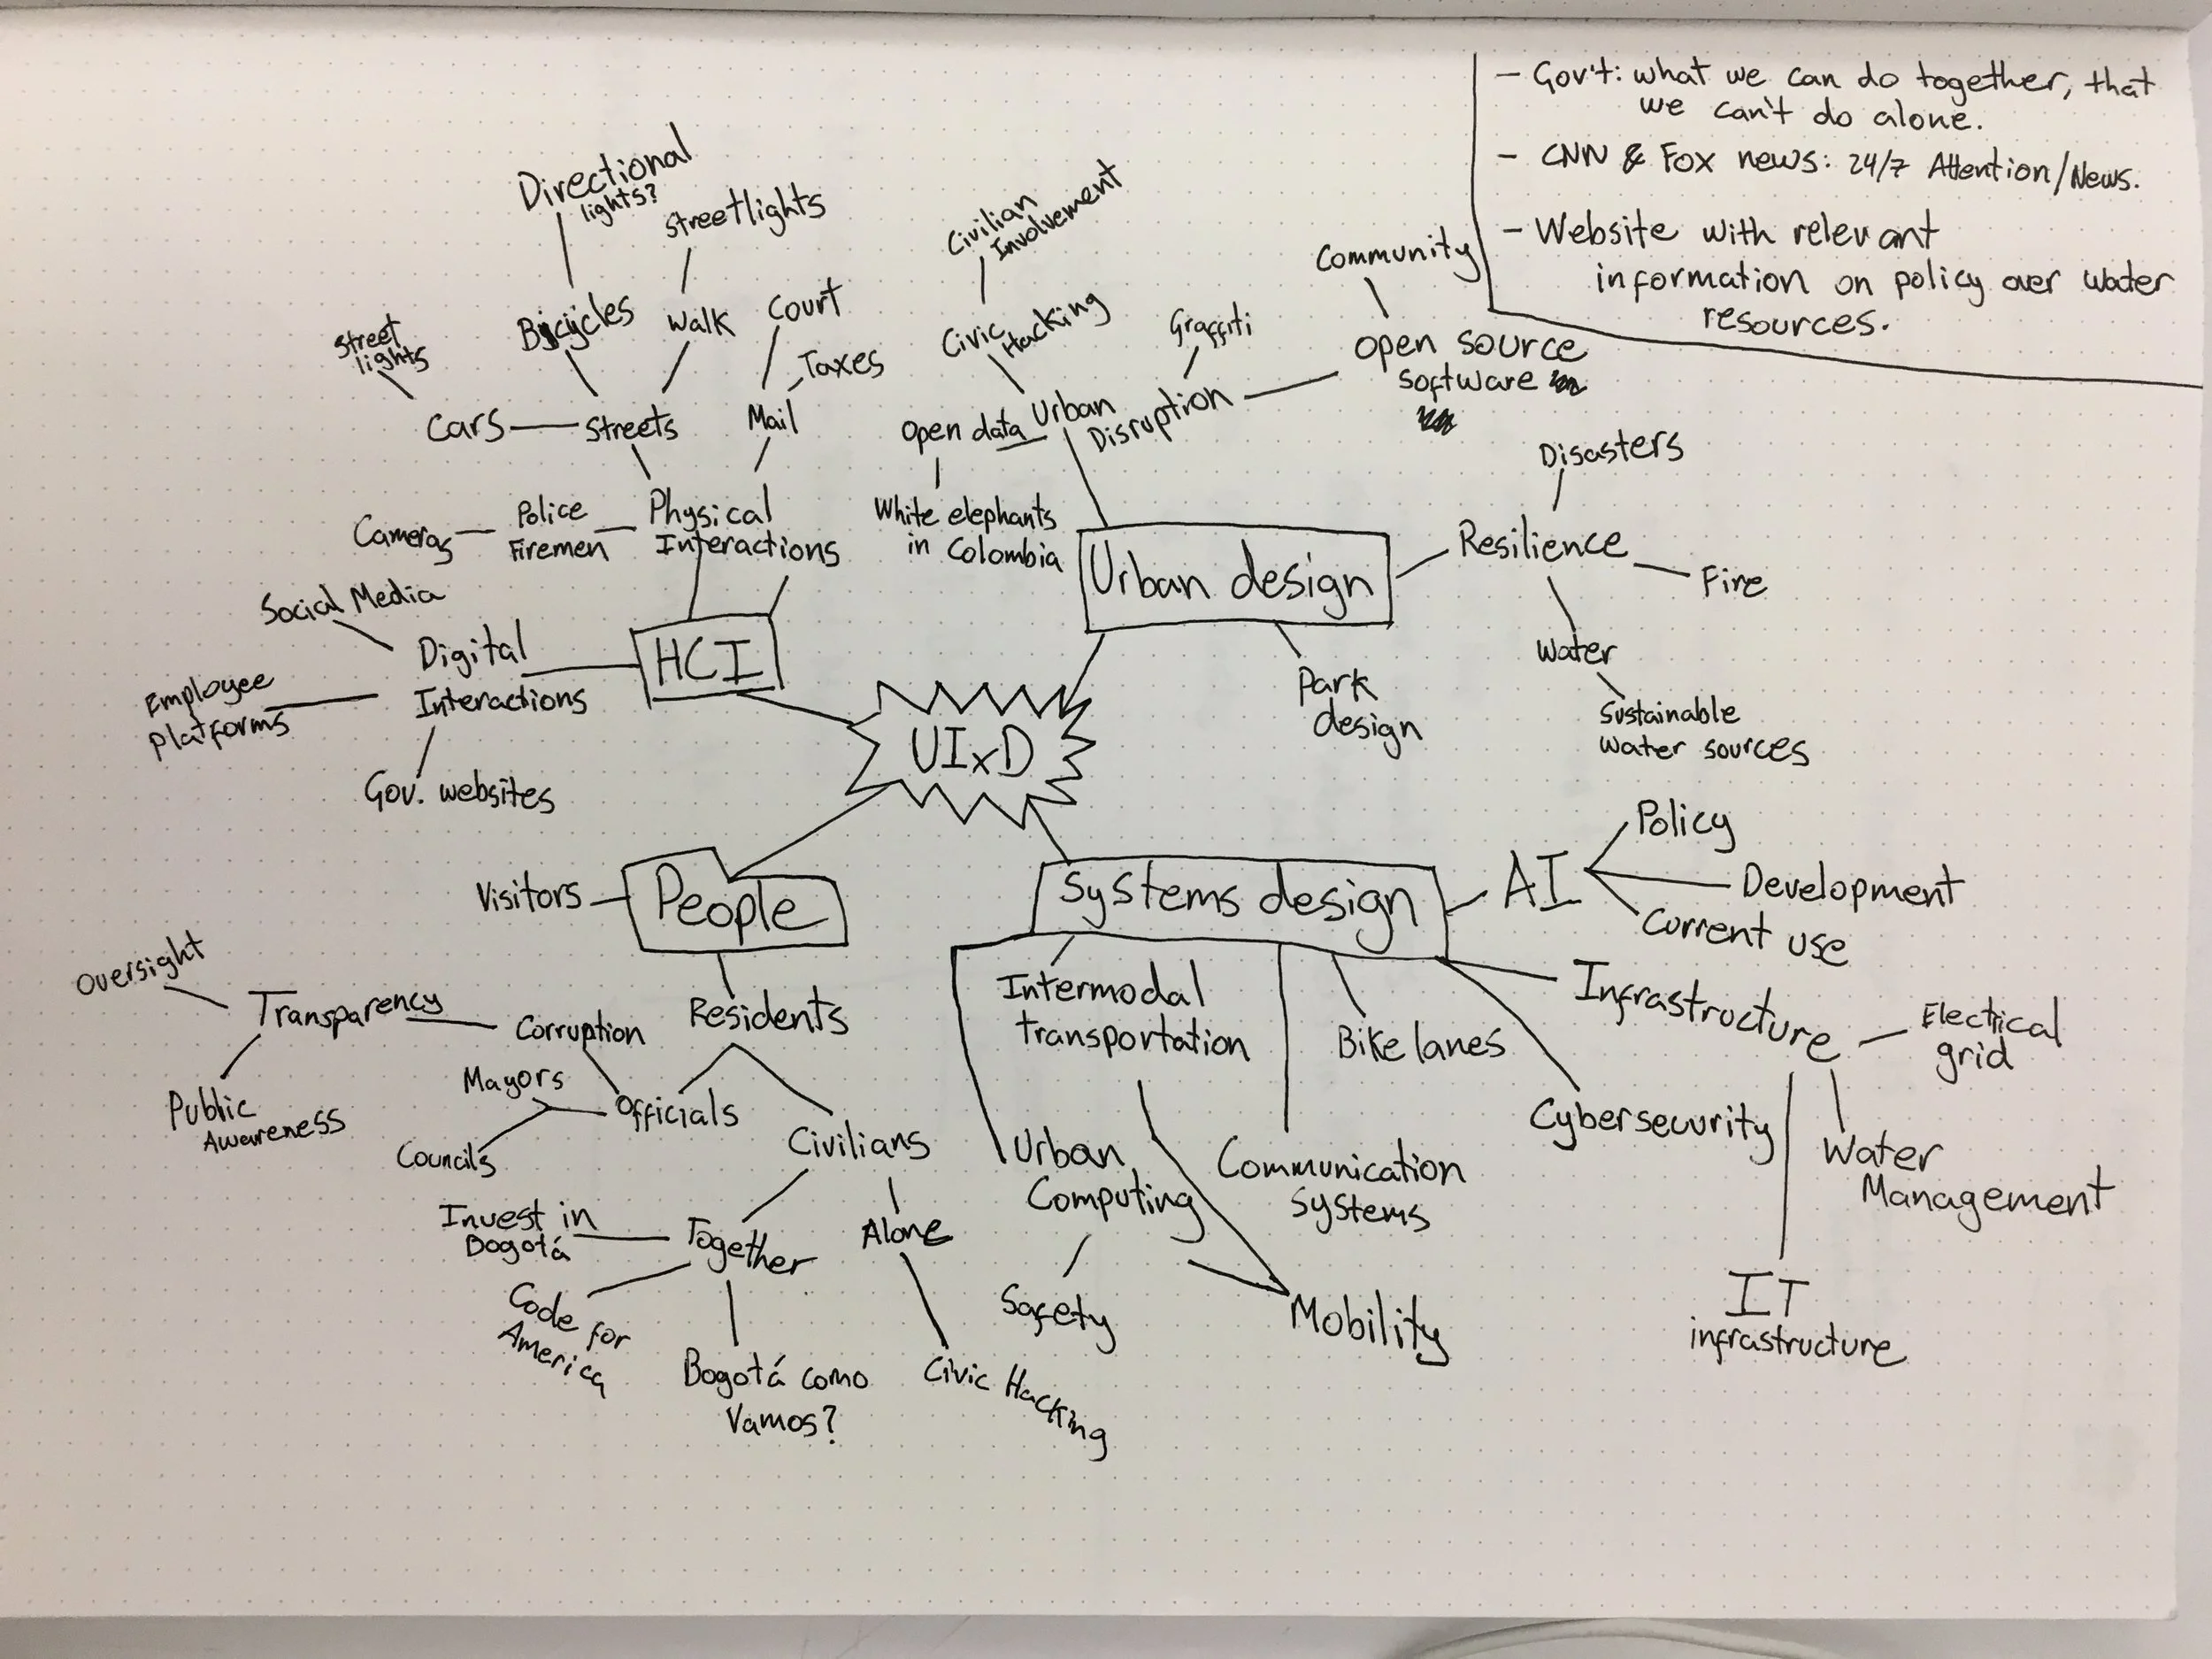 - Gov't: what we can do together, that
we can't do alone.
- CNN & Fox news: 24/7 Attention/News.
- Website with relevant
information on policy over water
resources.
Directional
lights?
Streetlights
Bicycles
Walk
Court
Taxes
Mail
Street
lights
Cars
Streets
Cameras
Police
Firemen
Physical
Interactions
Social Media
Digital
Interactions
Employee
platforms
Gov. websites
HCI
Civilian
Involvement
Civic Hacking
Graffiti
Community
open source
software
Open data
Urban
Disruption
White elephants
in Colombia
Urban design
Disasters
Resilience
Fire
Water
Sustainable
water sources
Park
design
UIxD
Visitors
People
Residents
Oversight
Transparency
Corruption
Public
Awareness
Mayors
Officials
Councils
Civilians
Invest in
Bogotá
Together
Alone
Code for
America
Bogotá como
Vamos?
Civic Hacking
Systems design
AI
Policy
Development
Current use
Intermodal
transportation
Bike lanes
Infrastructure
Electrical
grid
Cybersecurity
Water
Management
Urban
Computing
Communication
systems
Safety
Mobility
IT
infrastructure